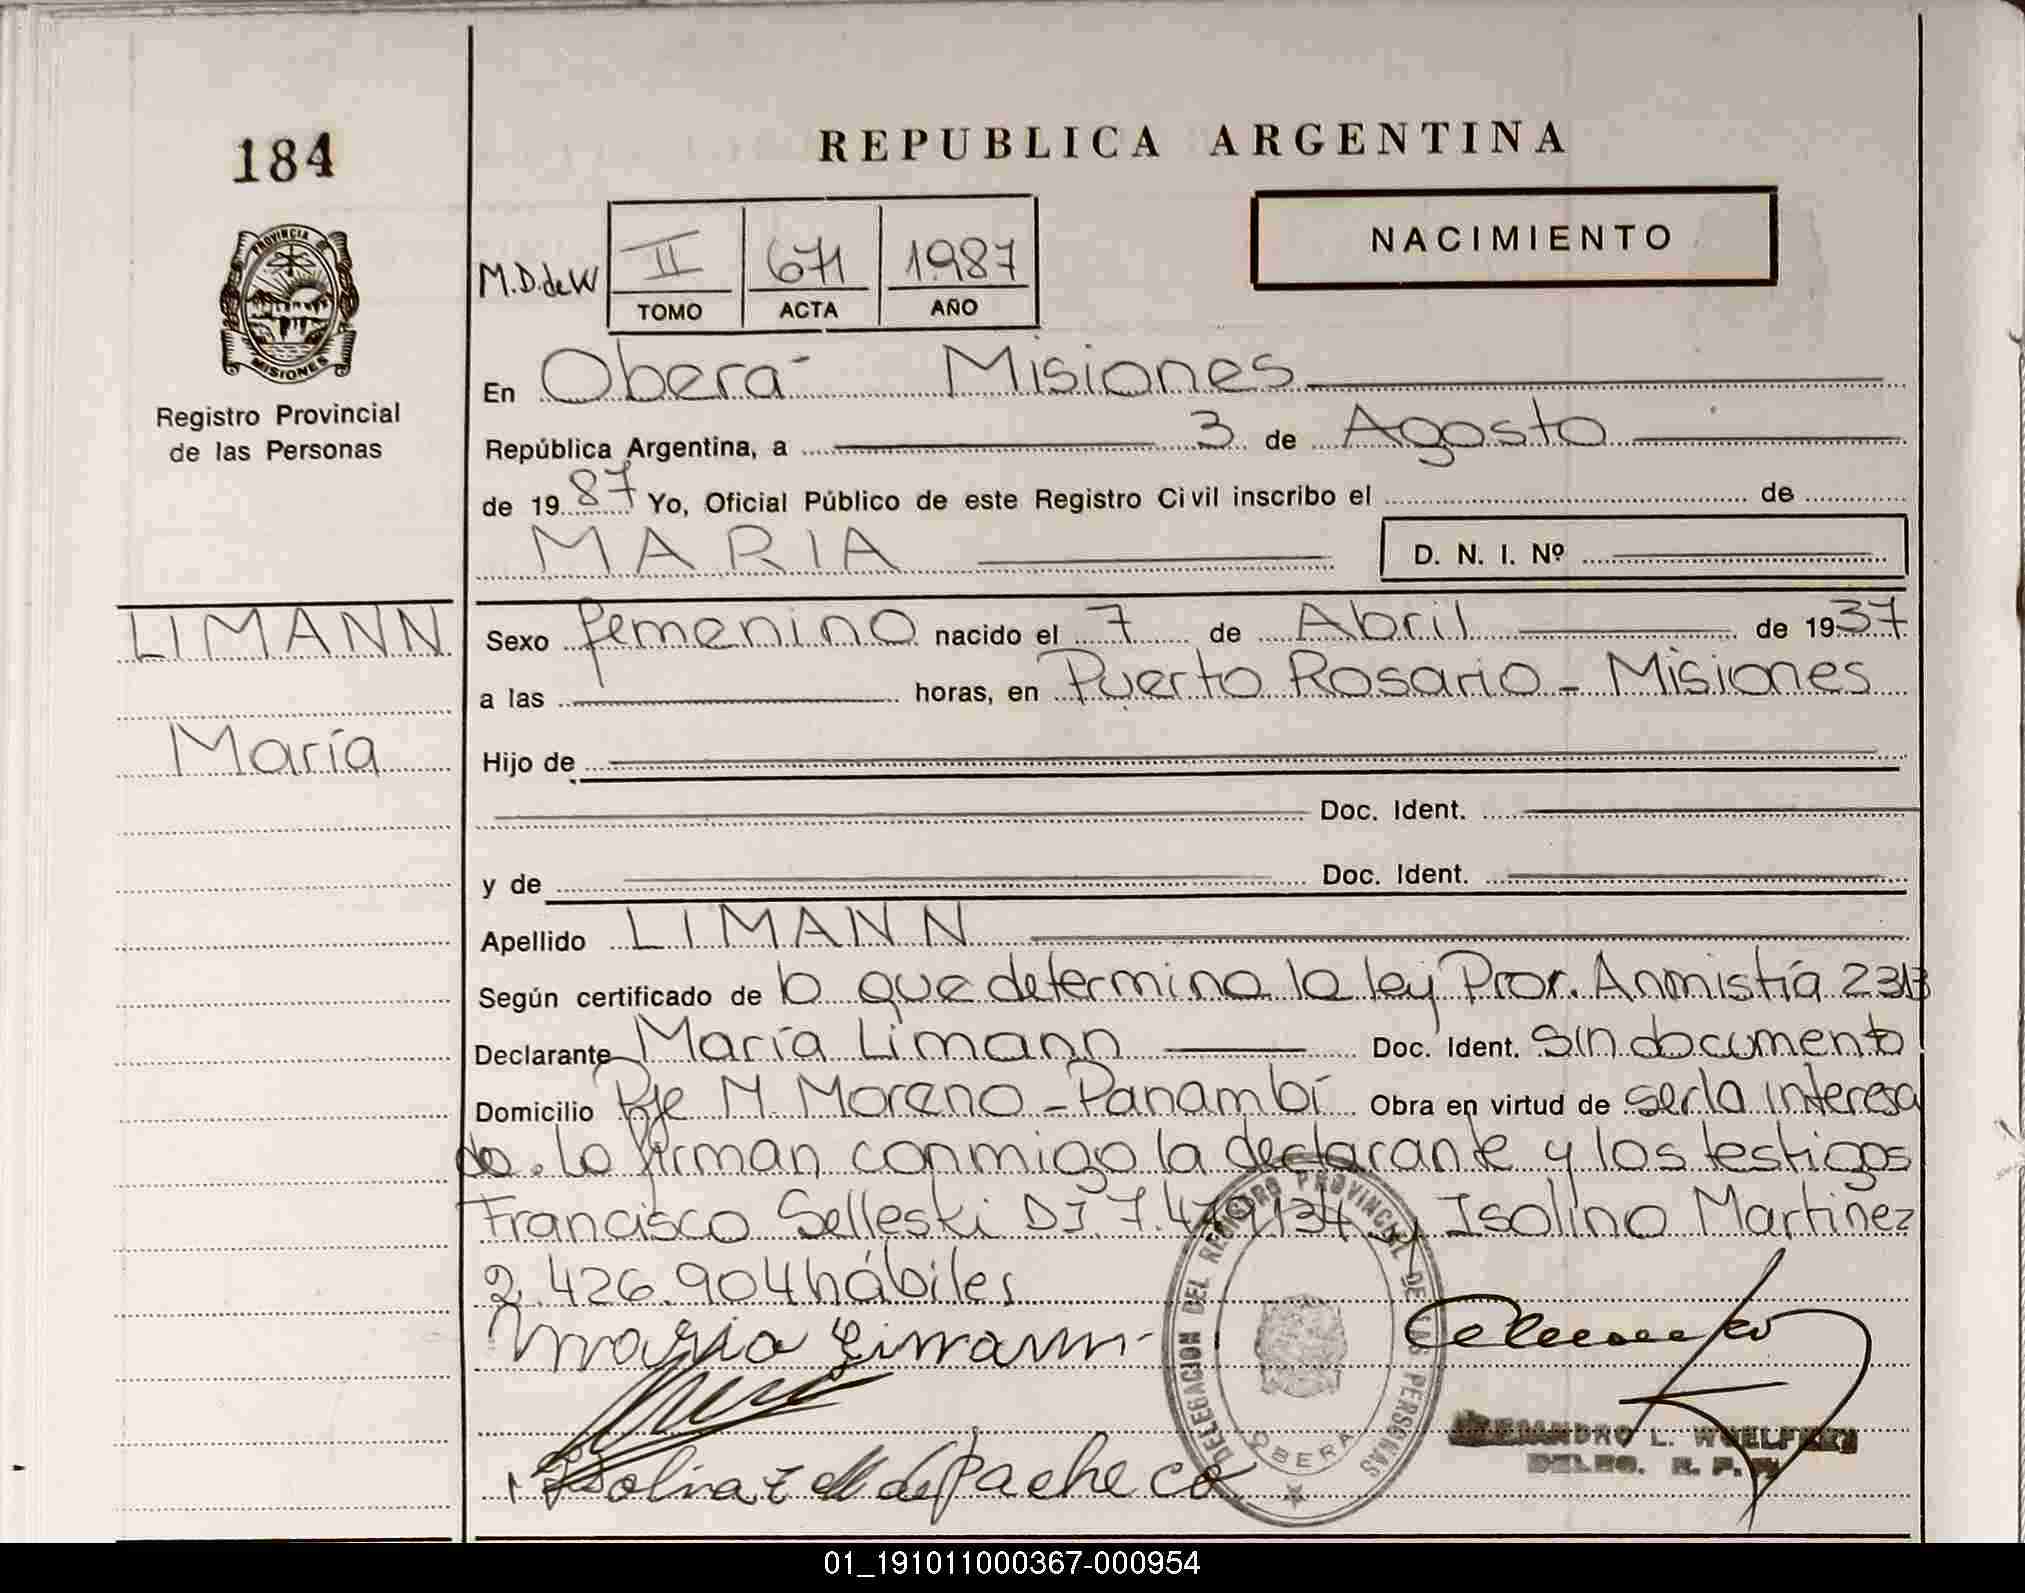 184
PROVINCIA
MISIONES
Registro Provincial
de las Personas
LIMANN
María
REPUBLICA ARGENTINA
NACIMIENTO
M.D.deW II 671 1987
TOMO ACTA AÑO
En Oberá - Misiones
República Argentina, a 3 de Agosto
de 1987 Yo, Oficial Público de este Registro Civil inscribo el de
MARIA D. N. I. Nº
Sexo femenino nacido el 7 de Abril de 1937
a las horas, en Puerto Rosario - Misiones
Hijo de
Doc. Ident.
y de Doc. Ident.
Apellido LIMANN
Según certificado de lo que determina la ley Pror. Anmistía 2313
Declarante María Limann Doc. Ident. Sin documento
Domicilio Pje M. Moreno - Panambí Obra en virtud de ser la interesa
da. Lo firman conmigo la declarante y los testigos
Francisco Selleski DI 7.479.134 y Isolino Martinez
2.426.904 hábiles
Maria Limann
de Pacheco
DELEGACION DEL REGISTRO PROVINCIAL DE LAS PERSONAS
OBERA
01_191011000367-000954